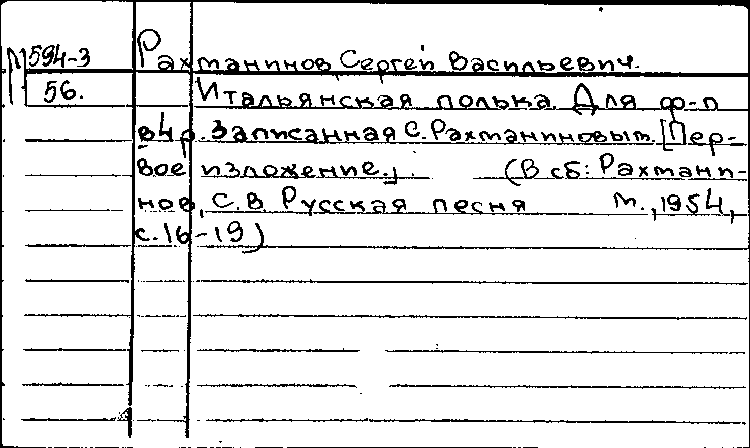 М 594-3 Рахманинов, Сергей Васильевич.
56. Итальянская полька. Для ф-п
в 4 р. Записанная С. Рахманиновым. [Пер-
вое изложение.] (В сб: Рахмани-
нов, С.В. Русская песня М., 1954,
с. 16-19)